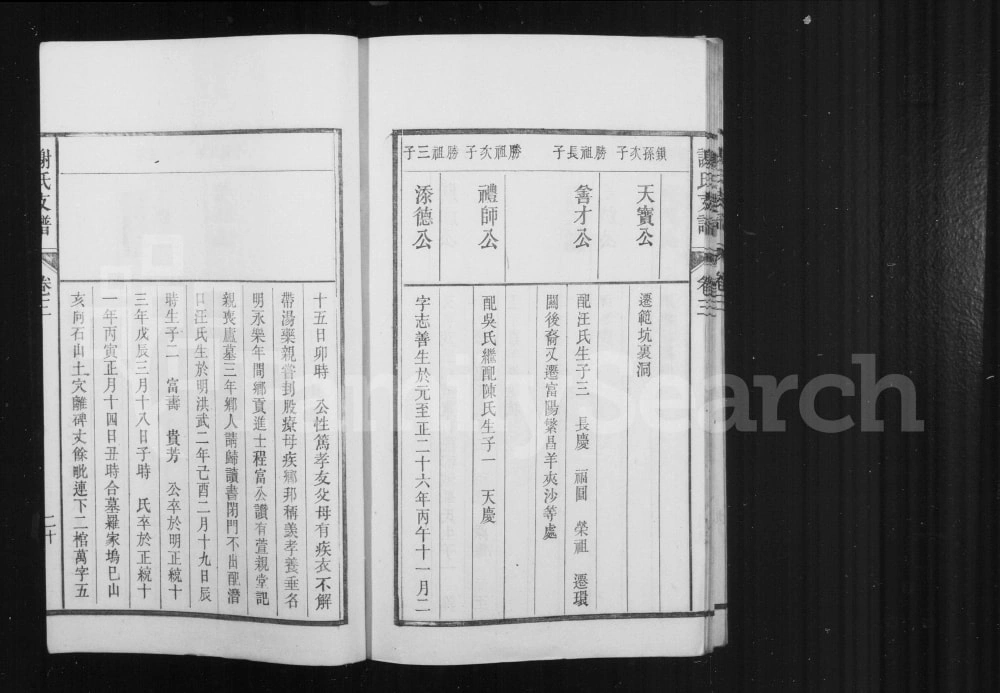 謝氏支譜
卷三
鎖孫次子
天寶公
遷範坑裏洞
勝祖長子
善才公
配汪氏生子三　長慶　福圓　榮祖　遷環
園後裔又遷富陽繁昌羊夾沙等處
勝祖次子
禮師公
配吳氏繼配陳氏生子一　天慶
勝祖三子
添德公
字志善生於元至正二十六年丙午十一月二
十五日卯時　公性篤孝友父母有疾衣不解
帶湯藥親嘗刲股療母疾鄉邦稱羨孝養垂名
明永樂年間鄉貢進士程富公讚有萱親堂記
親喪廬墓三年鄉人請歸讀書閉門不出配潛
口汪氏生於明洪武二年己酉二月十九日辰
時生子二　富壽　貴芳　公卒於明正統十
三年戊辰三月十八日子時　氏卒於正統十
一年丙寅正月十四日丑時合墓羅家塢巳山
亥向石山土穴離碑丈餘毗連下二棺萬字五
謝氏支譜
卷三
二十
FamilySearch